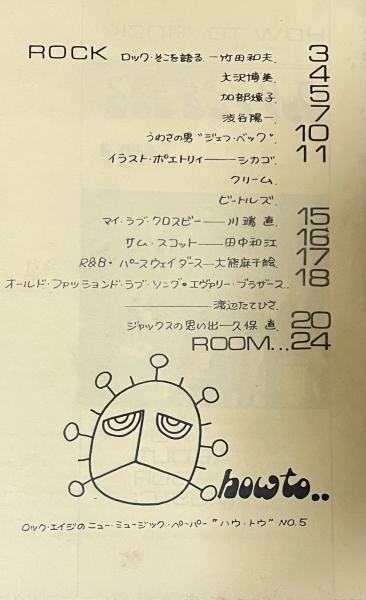 ROCK ロック・そこを語る.—竹田和夫. 3
大沢博美. 4
加部燿子. 5
渋谷陽一. 7
うわさの男 "ジェフ・ベック". 10
イラスト・ポエトリィ——シカゴ. 11
クリーム.
ビートルズ.
マイ・ラブ・クロスビー——川嶋 直. 15
サム・スコット——田中和江 16
R&B・パースウェイダース—大熊麻千絵. 17
オールド・ファッションド・ラブ・ソング・エヴァリー・ブラザース.. 18
——渡辺たてひさ.
ジャックスの思い出—久保 直. 20
ROOM...24
howto..
ロック・エイジのニュー・ミュージック・ペーパー "ハウ・トウ" NO.5